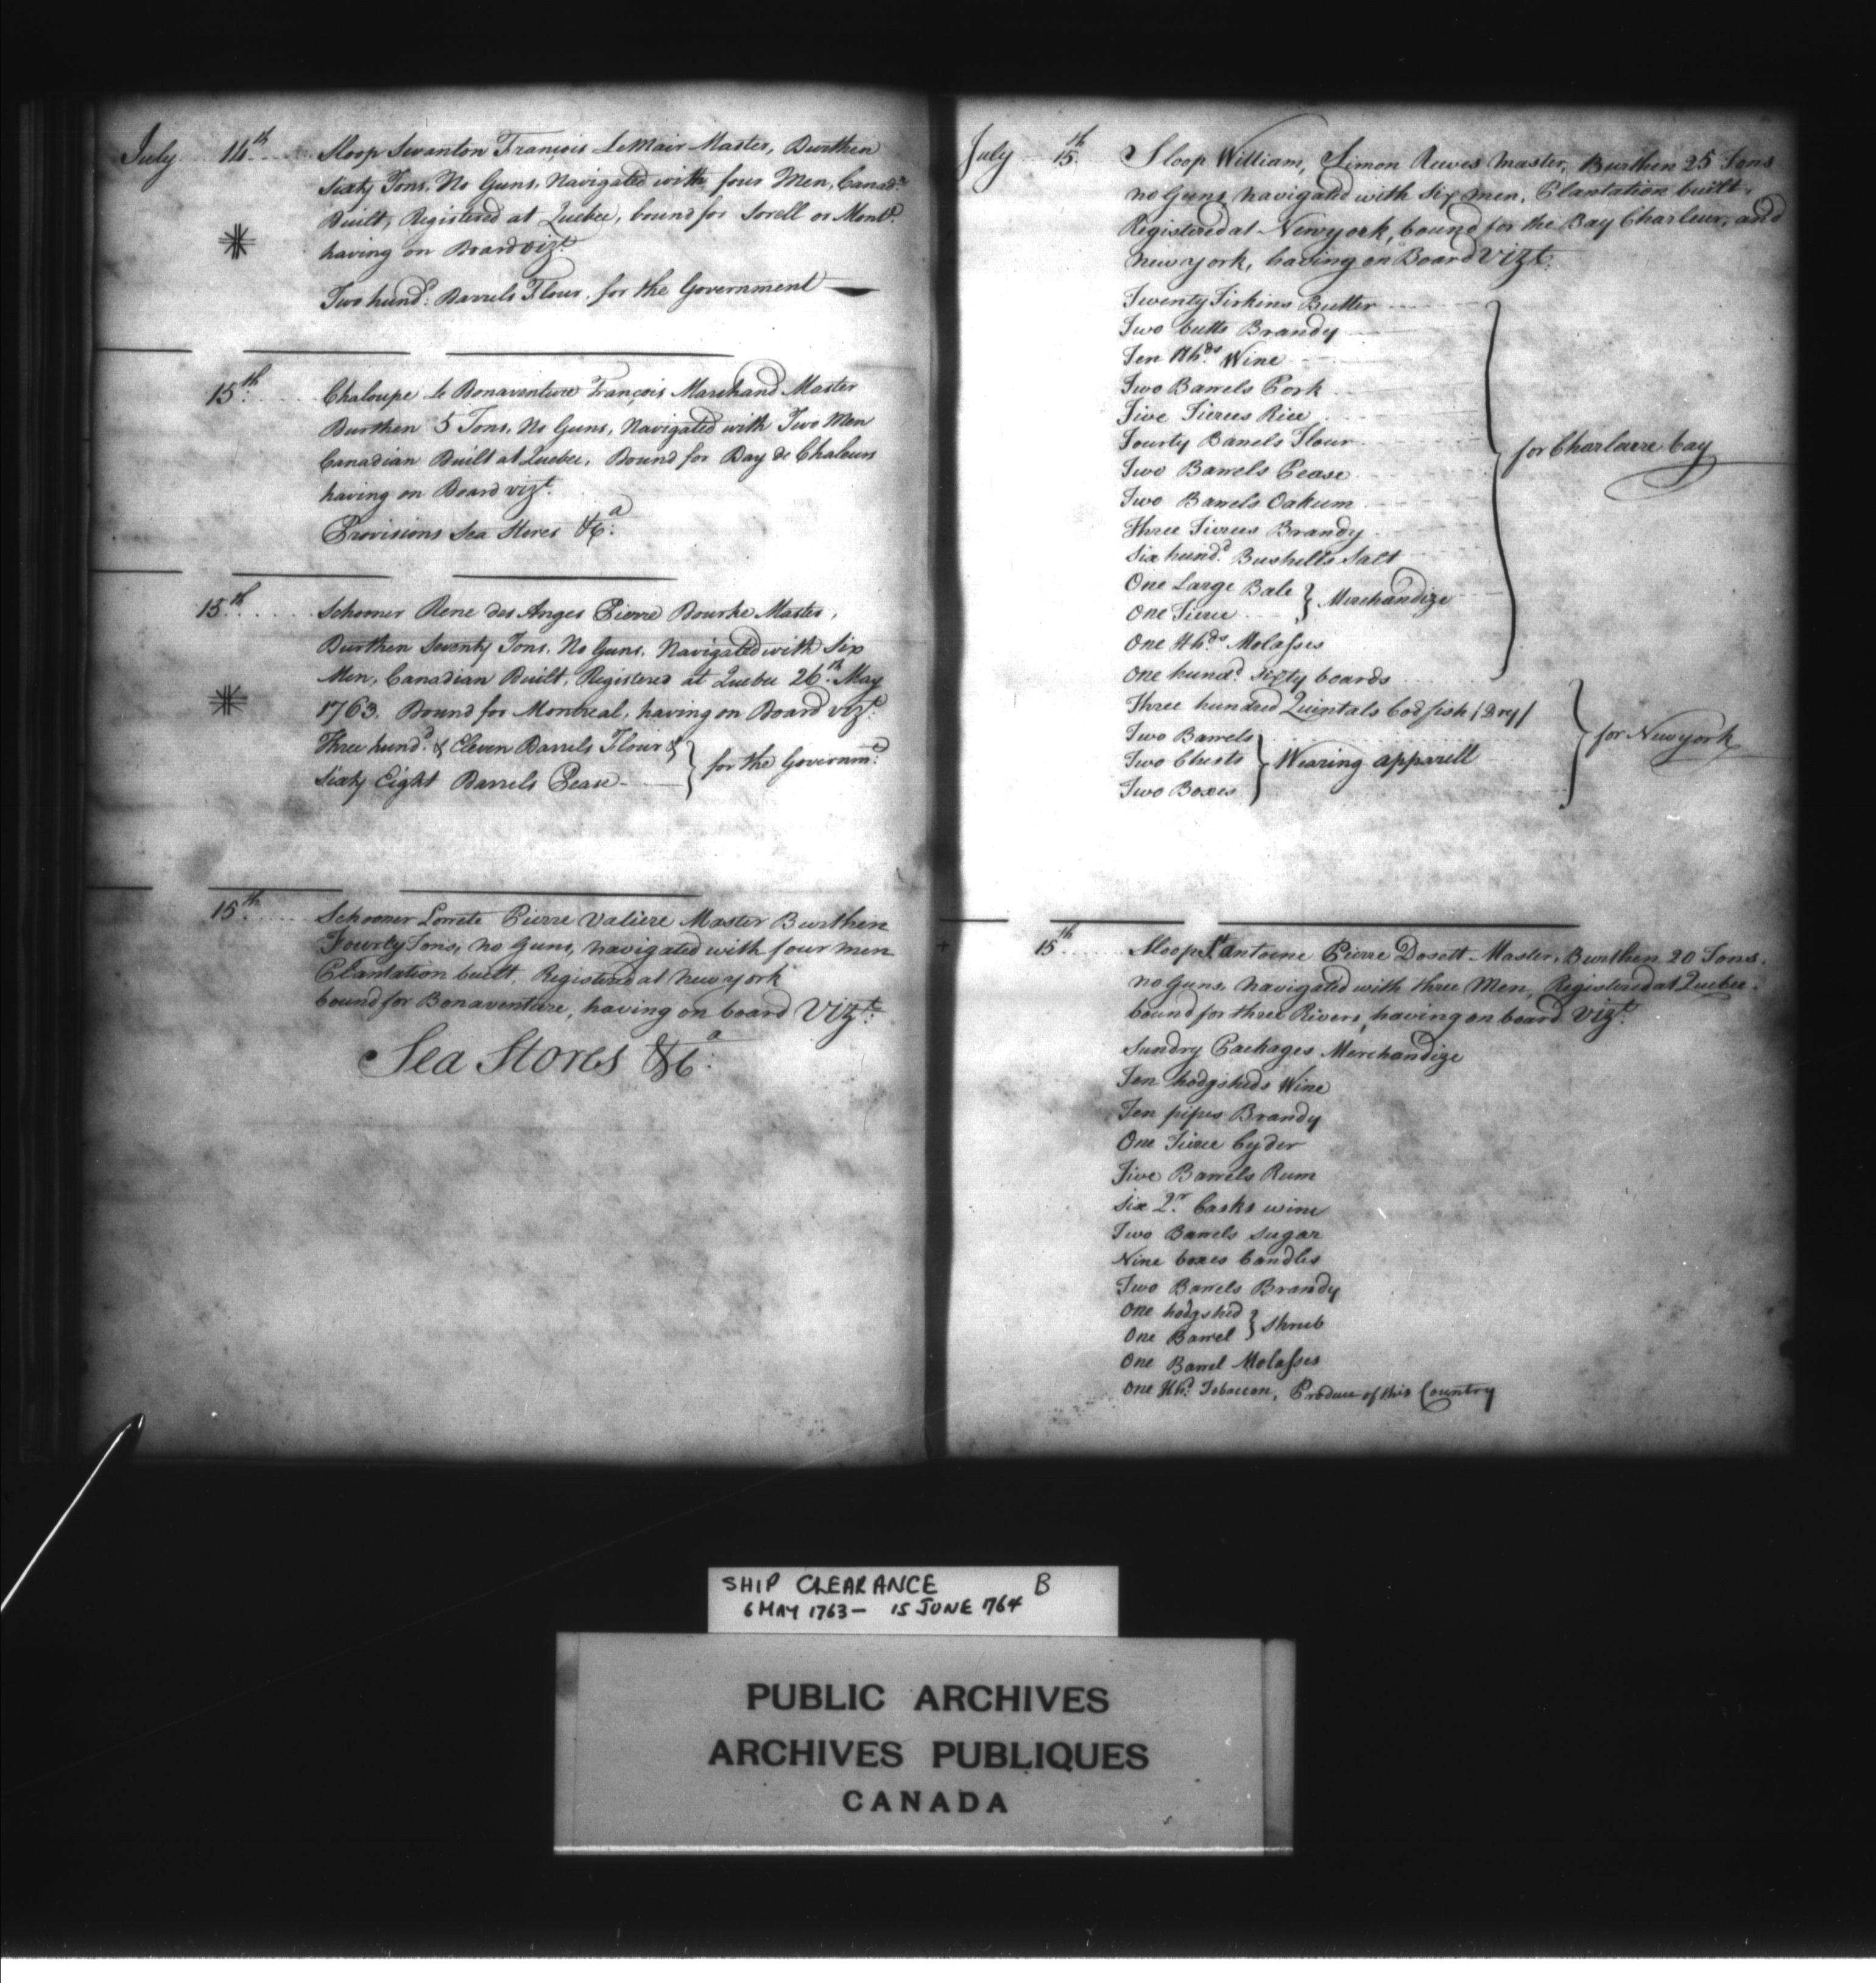 July 14th Sloop Swanton François LeMair Master, Burthen
Sixty Tons, No Guns, Navigated with four Men, Canadn
Built, Registered at Quebec, bound for Sorell or Montl
having on Board vizt
Two hundd Barrels Flour, for the Government
15th Chaloupe le Bonaventure François Marchand Master
Burthen 5 Tons, No Guns, Navigated with Two Men
Canadian Built at Quebec, Bound for Bay de Chaleurs
having on Board vizt
Provisions Sea Stores &ca
15th Schooner Rene des Anges Pierre Bourke Master,
Burthen Seventy Tons, No Guns, Navigated with Six
Men, Canadian Built, Registered at Quebec 26th May
1763. Bound for Montreal, having on Board vizt
Three hundd & Eleven Barrels Flour &
Sixty Eight Barrels Pease
for the Governmd
15th Schooner Lorrete Pierre Valiere Master Burthen
Fourty Tons, no Guns, navigated with four men
Plantation built, Registered at New york
bound for Bonaventure, having on board Vizt
Sea Stores &ca
July 15th Sloop William, Simon Reeves master, Burthen 25 Tons
no Guns, navigated with Six men, Plantation built,
Registered at Newyork, bound for the Bay Charleur, and
new york, having on Board Vizt
Twenty Firkins Butter
Two butts Brandy
Ten Hhds Wine
Two Barrels Pork
Five Tierces Rice
Fourty Barrels Flour
Two Barrels Pease
Two Barrels Oakum
Three Tierces Brandy
Six hundd Bushells Salt
One Large Bale
One Tierce
Merchandize
One Hhds Molasses
One hundd sixty boards
for Charlarre bay
Three hundred Quintals Codfish /Dry/
Two Barrels
Two Chests
Two Boxes
Wearing apparell
for Newyork
15th Sloop St antoine Pierre Dosett Master, Burthen 20 Tons,
no Guns, navigated with three Men, Registered at Quebec,
bound for three Rivers, having on board Vizt
Sundry Packages Merchandize
Ten hodgsheds Wine
Ten pipes Brandy
One Tierce Cyder
Five Barrels Rum
Six Qr Casks wine
Two Barrels Sugar
Nine boxes Candles
Two Barrels Brandy
One hodgshed
One Barrel
Shrub
One Barrel Molasses
One Hhd Tobaccon, Produce of this Country
SHIP CLEARANCE B
6 MAY 1763 – 15 JUNE 764
PUBLIC ARCHIVES
ARCHIVES PUBLIQUES
CANADA